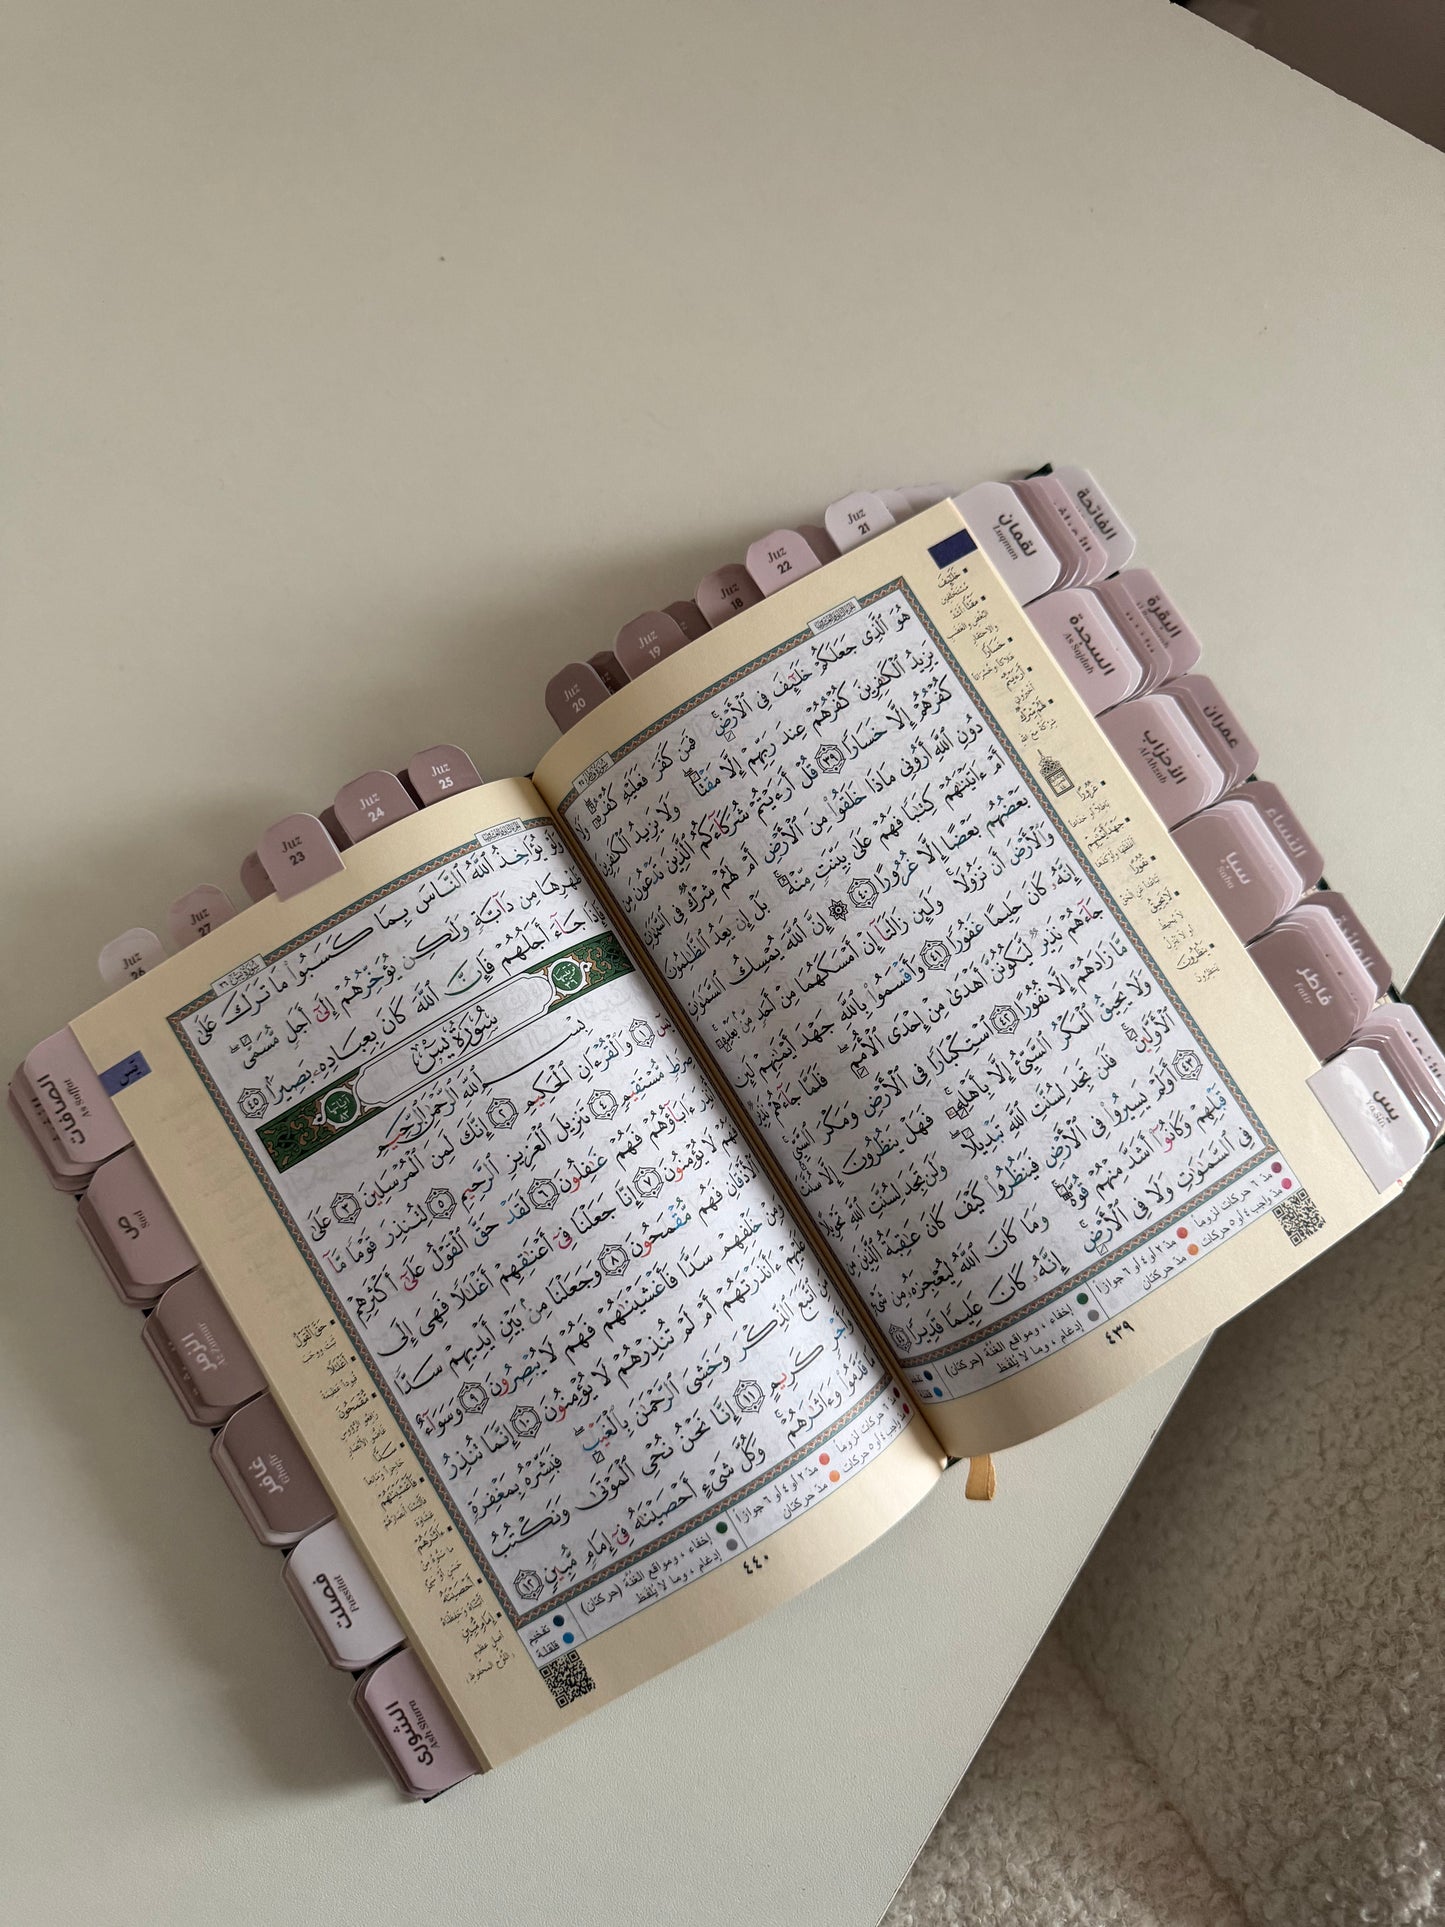 الفاتحة
لقمان
Luqman
البقرة
السجدة
As Sajdah
عمران
الأحزاب
Al Ahzab
النساء
سبإ
Saba
المائدة
فاطر
Fatir
يس
Yasin
Juz 21
Juz 22
Juz 18
Juz 19
Juz 20
Juz 25
Juz 24
Juz 23
Juz 27
Juz 26
هُوَ ٱلَّذِى جَعَلَكُمْ خَلَـٰٓئِفَ فِى ٱلْأَرْضِ ۚ فَمَن كَفَرَ فَعَلَيْهِ كُفْرُهُۥ ۖ وَلَا
يَزِيدُ ٱلْكَـٰفِرِينَ كُفْرُهُمْ عِندَ رَبِّهِمْ إِلَّا مَقْتًا ۖ وَلَا يَزِيدُ ٱلْكَـٰفِرِينَ
كُفْرُهُمْ إِلَّا خَسَارًا ٣٩ قُلْ أَرَءَيْتُمْ شُرَكَآءَكُمُ ٱلَّذِينَ تَدْعُونَ مِن
دُونِ ٱللَّهِ أَرُونِى مَاذَا خَلَقُوا۟ مِنَ ٱلْأَرْضِ أَمْ لَهُمْ شِرْكٌ فِى ٱلسَّمَـٰوَٰتِ
أَمْ ءَاتَيْنَـٰهُمْ كِتَـٰبًا فَهُمْ عَلَىٰ بَيِّنَتٍ مِّنْهُ ۚ بَلْ إِن يَعِدُ ٱلظَّـٰلِمُونَ
بَعْضُهُم بَعْضًا إِلَّا غُرُورًا ٤٠ ۞ إِنَّ ٱللَّهَ يُمْسِكُ ٱلسَّمَـٰوَٰتِ
وَٱلْأَرْضَ أَن تَزُولَا ۚ وَلَئِن زَالَتَآ إِنْ أَمْسَكَهُمَا مِنْ أَحَدٍ مِّنۢ بَعْدِهِۦٓ ۚ
إِنَّهُۥ كَانَ حَلِيمًا غَفُورًا ٤١ وَأَقْسَمُوا۟ بِٱللَّهِ جَهْدَ أَيْمَـٰنِهِمْ لَئِن
جَآءَهُمْ نَذِيرٌ لَّيَكُونُنَّ أَهْدَىٰ مِنْ إِحْدَى ٱلْأُمَمِ ۖ فَلَمَّا جَآءَهُمْ نَذِيرٌ
مَّا زَادَهُمْ إِلَّا نُفُورًا ٤٢ ٱسْتِكْبَارًا فِى ٱلْأَرْضِ وَمَكْرَ ٱلسَّيِّئِ ۚ
وَلَا يَحِيقُ ٱلْمَكْرُ ٱلسَّيِّئُ إِلَّا بِأَهْلِهِۦ ۚ فَهَلْ يَنظُرُونَ إِلَّا سُنَّتَ
ٱلْأَوَّلِينَ ۚ فَلَن تَجِدَ لِسُنَّتِ ٱللَّهِ تَبْدِيلًا ۖ وَلَن تَجِدَ لِسُنَّتِ ٱللَّهِ تَحْوِيلًا
٤٣ أَوَلَمْ يَسِيرُوا۟ فِى ٱلْأَرْضِ فَيَنظُرُوا۟ كَيْفَ كَانَ عَـٰقِبَةُ ٱلَّذِينَ مِن
قَبْلِهِمْ وَكَانُوٓا۟ أَشَدَّ مِنْهُمْ قُوَّةً ۚ وَمَا كَانَ ٱللَّهُ لِيُعْجِزَهُۥ مِن شَىْءٍ
فِى ٱلسَّمَـٰوَٰتِ وَلَا فِى ٱلْأَرْضِ ۚ إِنَّهُۥ كَانَ عَلِيمًا قَدِيرًا ٤٤
مدّ ٦ حركات لزوماً
مدّ ٢ أو ٤ أو ٦ جوازاً
مدّ واجب ٤ أو ٥ حركات
مدّ حركتان
إخفاء ، ومواقع الغُنَّة (حركتان)
إدغام ، وما لا يُلفَظ
٤٣٩
وَلَوْ يُؤَاخِذُ ٱللَّهُ ٱلنَّاسَ بِمَا كَسَبُوا۟ مَا تَرَكَ عَلَىٰ
ظَهْرِهَا مِن دَآبَّةٍ وَلَـٰكِن يُؤَخِّرُهُمْ إِلَىٰٓ أَجَلٍ مُّسَمًّى ۖ
فَإِذَا جَآءَ أَجَلُهُمْ فَإِنَّ ٱللَّهَ كَانَ بِعِبَادِهِۦ بَصِيرًۢا ٤٥
سُورَةُ يسٓ
بِسْمِ ٱللَّهِ ٱلرَّحْمَـٰنِ ٱلرَّحِيمِ
يسٓ ١ وَٱلْقُرْءَانِ ٱلْحَكِيمِ ٢ إِنَّكَ لَمِنَ ٱلْمُرْسَلِينَ ٣ عَلَىٰ
صِرَٰطٍ مُّسْتَقِيمٍ ٤ تَنزِيلَ ٱلْعَزِيزِ ٱلرَّحِيمِ ٥ لِتُنذِرَ قَوْمًا مَّآ
أُنذِرَ ءَابَآؤُهُمْ فَهُمْ غَـٰفِلُونَ ٦ لَقَدْ حَقَّ ٱلْقَوْلُ عَلَىٰٓ أَكْثَرِهِمْ
فَهُمْ لَا يُؤْمِنُونَ ٧ إِنَّا جَعَلْنَا فِىٓ أَعْنَـٰقِهِمْ أَغْلَـٰلًا فَهِىَ إِلَى
ٱلْأَذْقَانِ فَهُم مُّقْمَحُونَ ٨ وَجَعَلْنَا مِنۢ بَيْنِ أَيْدِيهِمْ سَدًّا
وَمِنْ خَلْفِهِمْ سَدًّا فَأَغْشَيْنَـٰهُمْ فَهُمْ لَا يُبْصِرُونَ ٩ وَسَوَآءٌ
عَلَيْهِمْ ءَأَنذَرْتَهُمْ أَمْ لَمْ تُنذِرْهُمْ لَا يُؤْمِنُونَ ١٠ إِنَّمَا تُنذِرُ
مَنِ ٱتَّبَعَ ٱلذِّكْرَ وَخَشِىَ ٱلرَّحْمَـٰنَ بِٱلْغَيْبِ ۖ فَبَشِّرْهُ بِمَغْفِرَةٍ
وَأَجْرٍ كَرِيمٍ ١١ إِنَّا نَحْنُ نُحْىِ ٱلْمَوْتَىٰ وَنَكْتُبُ
مَا قَدَّمُوا۟ وَءَاثَـٰرَهُمْ ۚ وَكُلَّ شَىْءٍ أَحْصَيْنَـٰهُ فِىٓ إِمَامٍ مُّبِينٍ ١٢
مدّ ٦ حركات لزوماً
مدّ ٢ أو ٤ أو ٦ جوازاً
مدّ واجب ٤ أو ٥ حركات
مدّ حركتان
إخفاء ، ومواقع الغُنَّة (حركتان)
إدغام ، وما لا يُلفَظ
تفخيم
قلقلة
٤٤٠
يس
حَقَّ ٱلْقَوْلُ
ثَبَتَ وَوَجَبَ
أَغْلَـٰلًا
مُّقْمَحُونَ
سَدًّا
فَأَغْشَيْنَـٰهُمْ
أَحْصَيْنَـٰهُ
إِمَامٍ مُّبِينٍ
الصافات
As Saffat
ص
Sad
الزمر
Az Zumar
غافر
Ghafir
فصلت
Fussilat
الشورى
Ash Shura